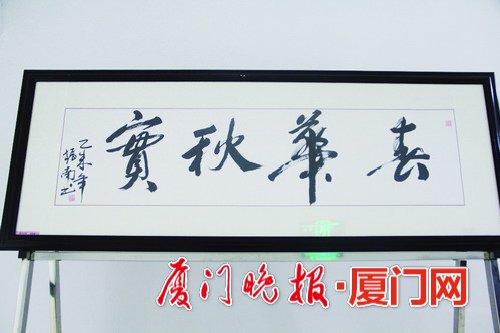 春華秋實
乙未年
振南书
厦门晚报·厦门网